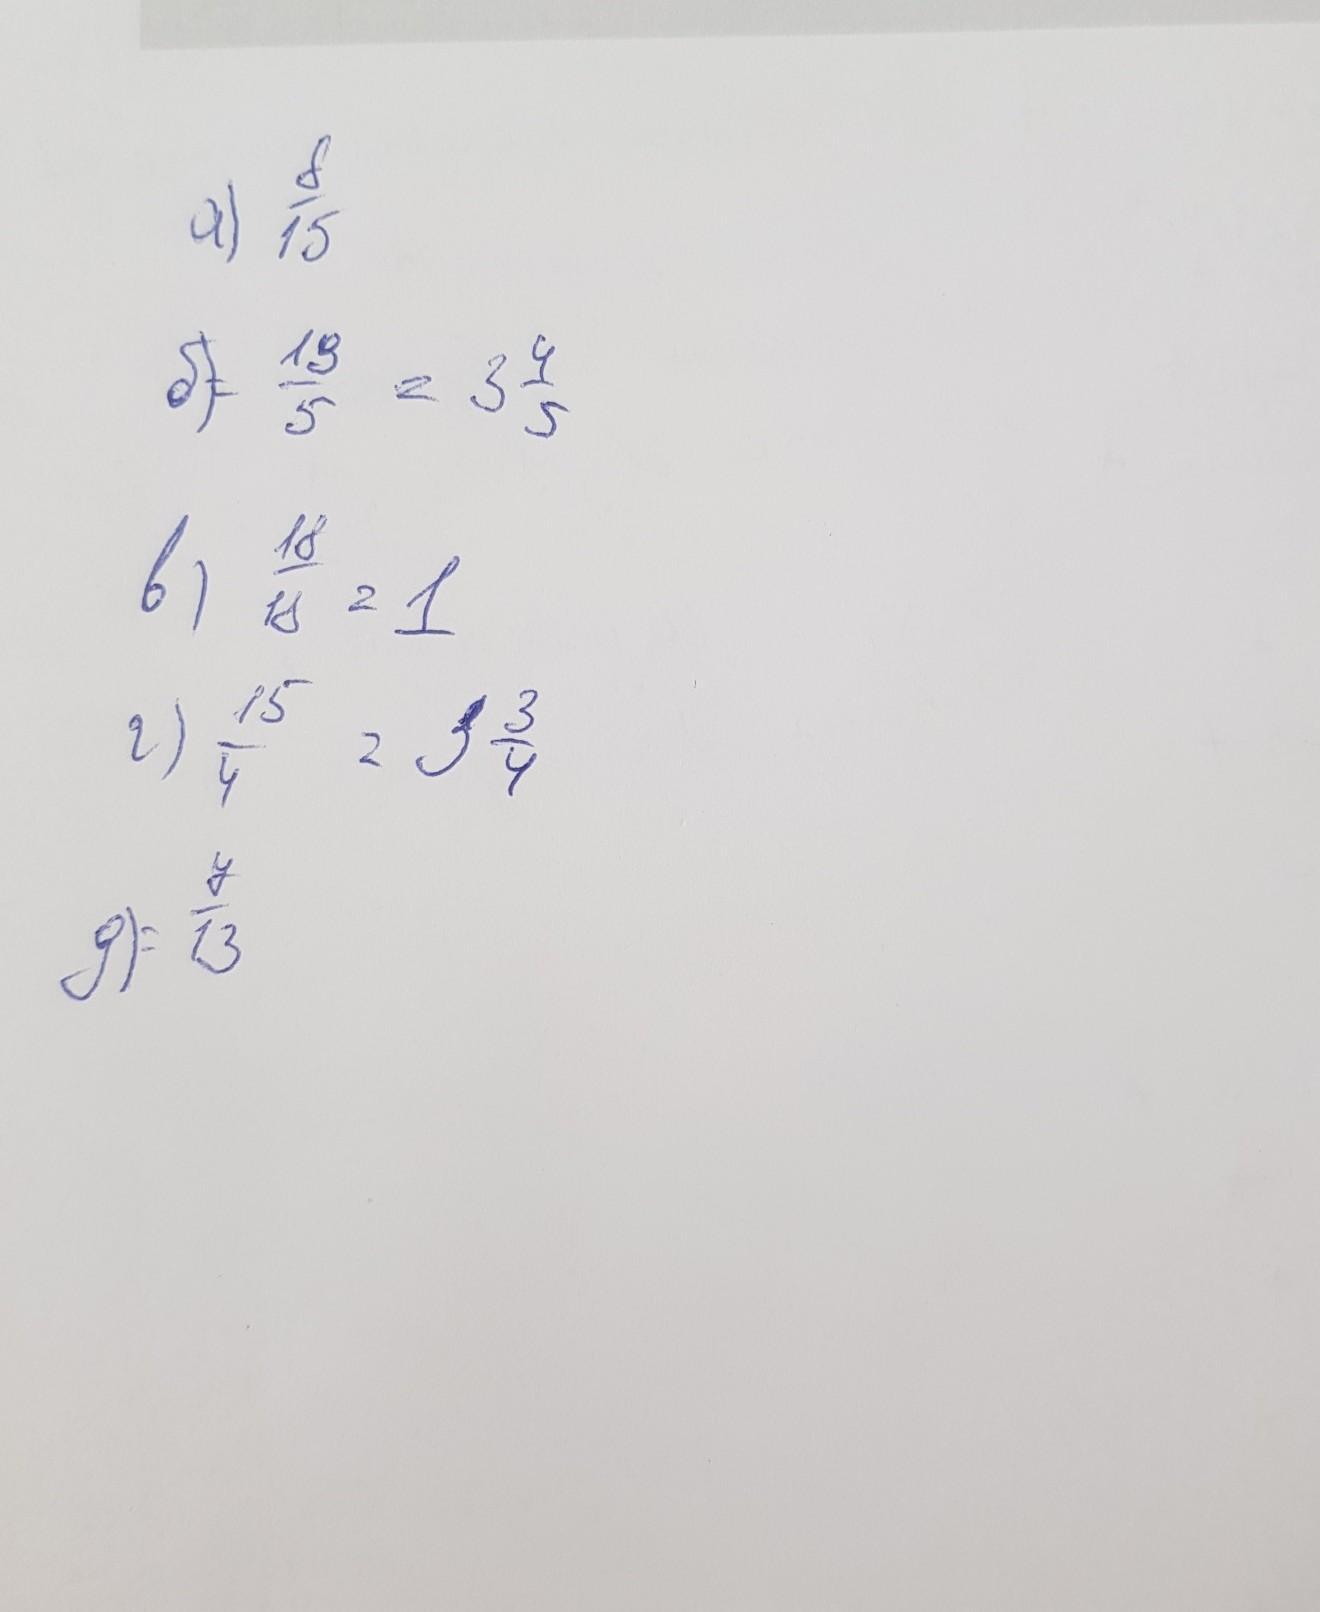 а) 8/15
б)= 19/5 = 3 4/5
в) 18/18 = 1
г) 15/4 = 3 3/4
д)= 7/13